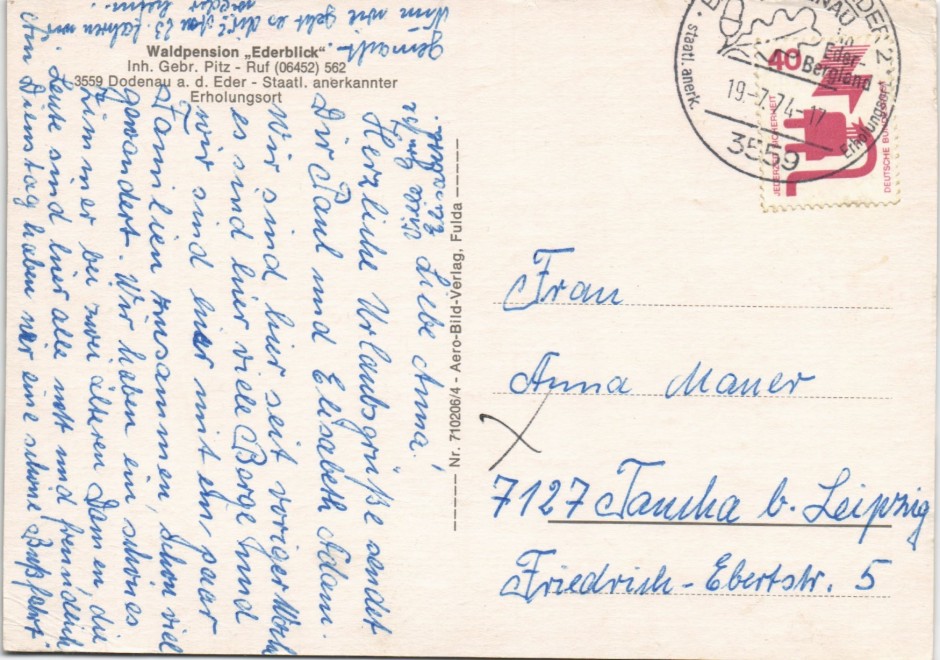 Waldpension „Ederblick"
Inh. Gebr. Pitz - Ruf (06452) 562
3559 Dodenau a. d. Eder - Staatl. anerkannter
Erholungsort
Liebe Anna!
Herzliche Urlaubsgrüße sendet
Dir Paul und Elisabeth Adam.
Wir sind hier seit voriger Woch
es sind hier viele Berge und
wir sind hier mit ein paar
Familien zusammen, schon viel
gewandert. Wir haben ein schönes
Zimmer bei zwei älteren Damen, die
Leute sind hier alle nett und freundlich
Am Dienstag haben wir eine schöne Busfahrt
gemacht.
Nun wie geht es dir? Am 23. fahren wir
wieder heim.
Nr. 710206/4 - Aero-Bild-Verlag, Fulda
40
JEDERZEIT SICHERHEIT
DEUTSCHE BUNDESPOST
Eder-
Bergland
19.-7.74-17
staatl. anerk.
Erholungsort
3559
Frau
Anna Mauer
7127 Taucha b. Leipzig
Friedrich-Ebertstr. 5